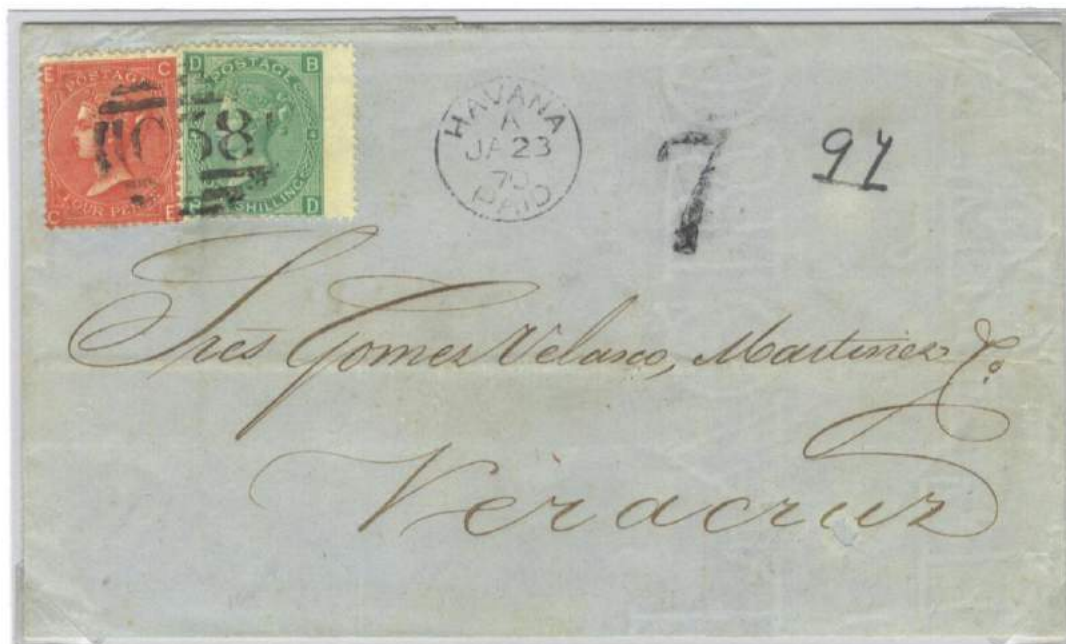 E C
POSTAGE
FOUR PENCE
C E
D B
POSTAGE
SHILLING
D
C58
HAVANA
A
JA 23
70
PAID
7
94
Sres Gomez Velasco, Martinez Co.
Veracruz